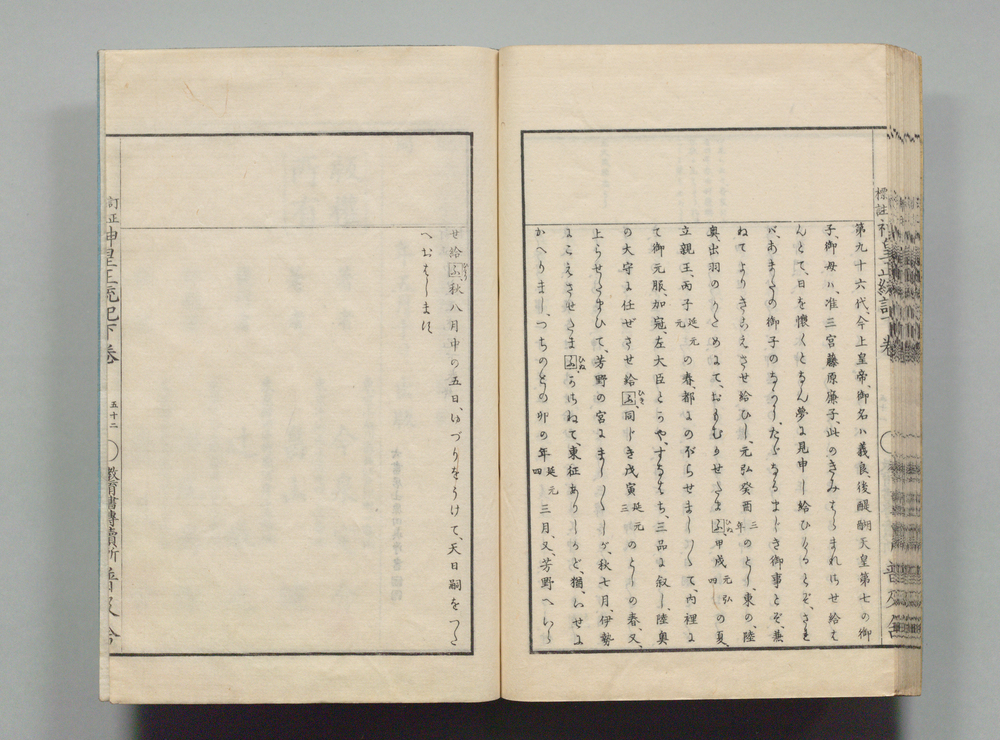 第九十六代、今上皇帝、御名ハ義良、後醍醐天皇第七の御
子、御母ハ、准三宮藤原廉子、此のきみむまれさせ給は
んとて、日を懐くとなん夢に見申し給ひけるとぞ、さ
ば、あまたの御子のなかに、たゞなるまじき御事とぞ、兼
ねてよりきこえさせ給ひし、元弘癸酉三年のとし、東の、陸
奥、出羽のかためにて、おもむかせたまふ、甲戌元弘四の夏、
立親王、丙子延元元の春都にのぼらせまし〳〵て、内裡に
て御元服、加冠、左大臣とかや、すなはち、三品に叙し、陸奥
の大守に任ぜさせ給ふ、同じき戊寅延元三のとしの春、又、
上らせたまひて、芳野の宮にまし〳〵しが、秋七月、伊勢
にこえさせたまふ、かさねて、東征ありしかど、猶、いせに
かへりまし、つちのとの卯の年延元四三月、又、芳野へいら
せ給ふ、秋八月中の五日、ゆづりをうけて、天日嗣をつた
へおはします
標註
訂正
神皇正統記下巻
五十二
教育書専賣所普及舎